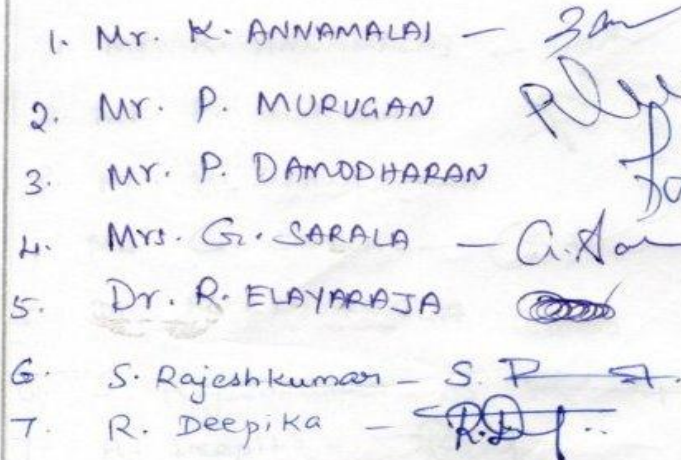 1. Mr. K. ANNAMALAI -
2. Mr. P. MURUGAN
3. Mr. P. DAMODHARAN
4. Mrs. G. SARALA - G.
5. Dr. R. ELAYARAJA
6. S. Rajeshkumar - S. R
7. R. Deepika - R.D